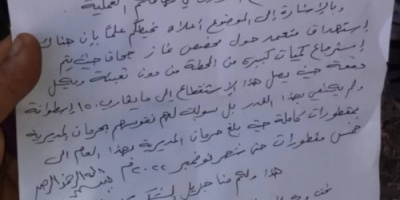 وبالإشارة إلى الموضوع أعلاه نحيطكم علماً بأن هناك
إستهداف متعمد حول مخصص غاز جحاف حيث يتم
إسترجاع كميات كبيرة من المحطة من دون تعبئة وبشكل
دفعة حيث يصل هذا الإستقطاع إلى ما يقارب ١٥٠ إسطوانة
ولم يكتفي بهذا القدر بل سولت لهم نفوسهم بحرمان المديرية
بمقطورات كاملة حيث بلغ حرمان المديرية بهذا العام الى
خمس مقطورات حتى شهر نوفمبر ٢٠٢٢م
هذا ولكم منا جزيل الشكر